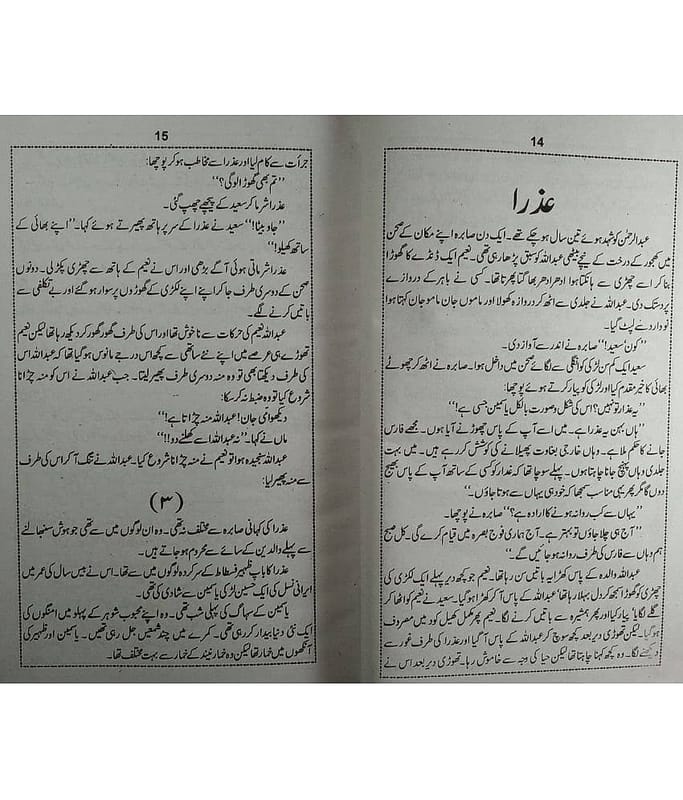 14
عذرا
عبدالرحمٰن کو شہید ہوئے تین سال ہو چکے تھے۔ ایک دن صابرہ اپنے مکان کے صحن
میں کھجور کے درخت کے نیچے بیٹھی عبداللہ کو سبق پڑھا رہی تھی۔ نعیم ایک ڈنڈے کا گھوڑا
بنا کر اسے چھڑی سے ہانکتا ہوا ادھر ادھر بھاگتا پھرتا تھا۔ کسی نے باہر کے دروازے
پر دستک دی۔ عبداللہ نے جلدی سے اٹھ کر دروازہ کھولا اور ماموں جان ماموں جان کہتا ہوا
نووارد سے لپٹ گیا۔
’’کون‘ سعید!‘‘ صابرہ نے اندر سے آواز دی۔
سعید ایک کم سن لڑکی کو انگلی سے لگائے صحن میں داخل ہوا۔ صابرہ نے اٹھ کر چھوٹے
بھائی کا خیر مقدم کیا اور لڑکی کو پیار کرتے ہوئے پوچھا:
’’یہ عذرا تو نہیں؟ اس کی شکل و صورت بالکل یاسمین جیسی ہے!‘‘
’’ہاں بہن یہ عذرا ہے۔ میں اسے آپ کے پاس چھوڑنے آیا ہوں۔ مجھے فارس
جانے کا حکم ملا ہے۔ وہاں خارجی بغاوت پھیلانے کی کوشش کر رہے ہیں۔ میں بہت
جلدی وہاں پہنچ جانا چاہتا ہوں۔ پہلے سوچا تھا کہ عذرا کو کسی کے ساتھ آپ کے پاس بھیج
دوں گا مگر پھر یہی مناسب سمجھا کہ خود ہی یہاں سے ہوتا جاؤں۔‘‘
’’یہاں سے کب روانہ ہونے کا ارادہ ہے؟‘‘ صابرہ نے پوچھا۔
’’آج ہی چلا جاؤں تو بہتر ہے۔ آج ہماری فوج بصرہ میں قیام کرے گی۔ کل صبح
ہم وہاں سے فارس کی طرف روانہ ہو جائیں گے۔‘‘
عبداللہ والدہ کے پاس کھڑا یہ باتیں سن رہا تھا۔ نعیم جو کچھ دیر پہلے ایک لکڑی کی
چھڑی کو گھوڑا سمجھ کر دل بہلا رہا تھا عبداللہ کے پاس آ کر کھڑا ہو گیا۔ سعید نے نعیم کو اٹھا کر
گلے لگایا‘ پیار کیا اور پھر ہمشیرہ سے باتیں کرنے لگا۔ نعیم پھر کھیل کود میں مصروف
ہو گیا۔ لیکن تھوڑی دیر بعد کچھ سوچ کر عبداللہ کے پاس آ گیا اور عذرا کی طرف غور سے
دیکھنے لگا۔ وہ کچھ کہنا چاہتا تھا لیکن حیا کی وجہ سے خاموش رہا۔ تھوڑی دیر بعد اس نے
15
جرأت سے کام لیا اور عذرا سے مخاطب ہو کر پوچھا:
’’تم بھی گھوڑا لو گی؟‘‘
عذرا شرما کر سعید کے پیچھے چھپ گئی۔
’’جاؤ بیٹا!‘‘ سعید نے عذرا کے سر پر ہاتھ پھیرتے ہوئے کہا۔ ’’اپنے بھائی کے
ساتھ کھیلو!‘‘
عذرا شرماتی ہوئی آگے بڑھی اور اس نے نعیم کے ہاتھ سے چھڑی پکڑ لی۔ دونوں
صحن کے دوسری طرف جا کر اپنے اپنے لکڑی کے گھوڑوں پر سوار ہو گئے اور بے تکلفی سے
باتیں کرنے لگے۔
عبداللہ نعیم کی حرکات سے ناخوش تھا اور اس کی طرف گھور گھور کر دیکھ رہا تھا لیکن نعیم
تھوڑے ہی عرصے میں اپنے نئے ساتھی سے کچھ اس درجے مانوس ہو گیا تھا کہ عبداللہ اس
کی طرف دیکھتا بھی تو وہ منہ دوسری طرف پھیر لیتا۔ جب عبداللہ نے اس کو منہ چڑانا
شروع کیا تو وہ ضبط نہ کر سکا:
دیکھو امی جان! عبداللہ منہ چڑاتا ہے!‘‘
ماں نے کہا۔ ’’نہ عبداللہ اسے کھیلنے دو!!‘‘
عبداللہ سنجیدہ ہوا تو نعیم نے منہ چڑانا شروع کیا۔ عبداللہ نے تنگ آ کر اس کی طرف
سے منہ پھیر لیا:
(۳)
عذرا کی کہانی صابرہ سے مختلف نہ تھی۔ وہ ان لوگوں میں سے تھی جو ہوش سنبھالنے
سے پہلے والدین کے سائے سے محروم ہو جاتے ہیں۔
عذرا کا باپ ظہیر فسطاط کے سرکردہ لوگوں میں سے تھا۔ اس نے بیس سال کی عمر میں
ایرانی نسل کی ایک حسین لڑکی یاسمین سے شادی کی تھی۔
یاسمین کے سہاگ کی پہلی شب تھی۔ وہ اپنے محبوب شوہر کے پہلو میں امنگوں کی
ایک نئی دنیا بیدار کر رہی تھی۔ کمرے میں چند شمعیں جل رہی تھیں۔ یاسمین اور ظہیر کی
آنکھوں میں خمار تھا لیکن وہ خمار نیند کے خمار سے بہت مختلف تھا۔